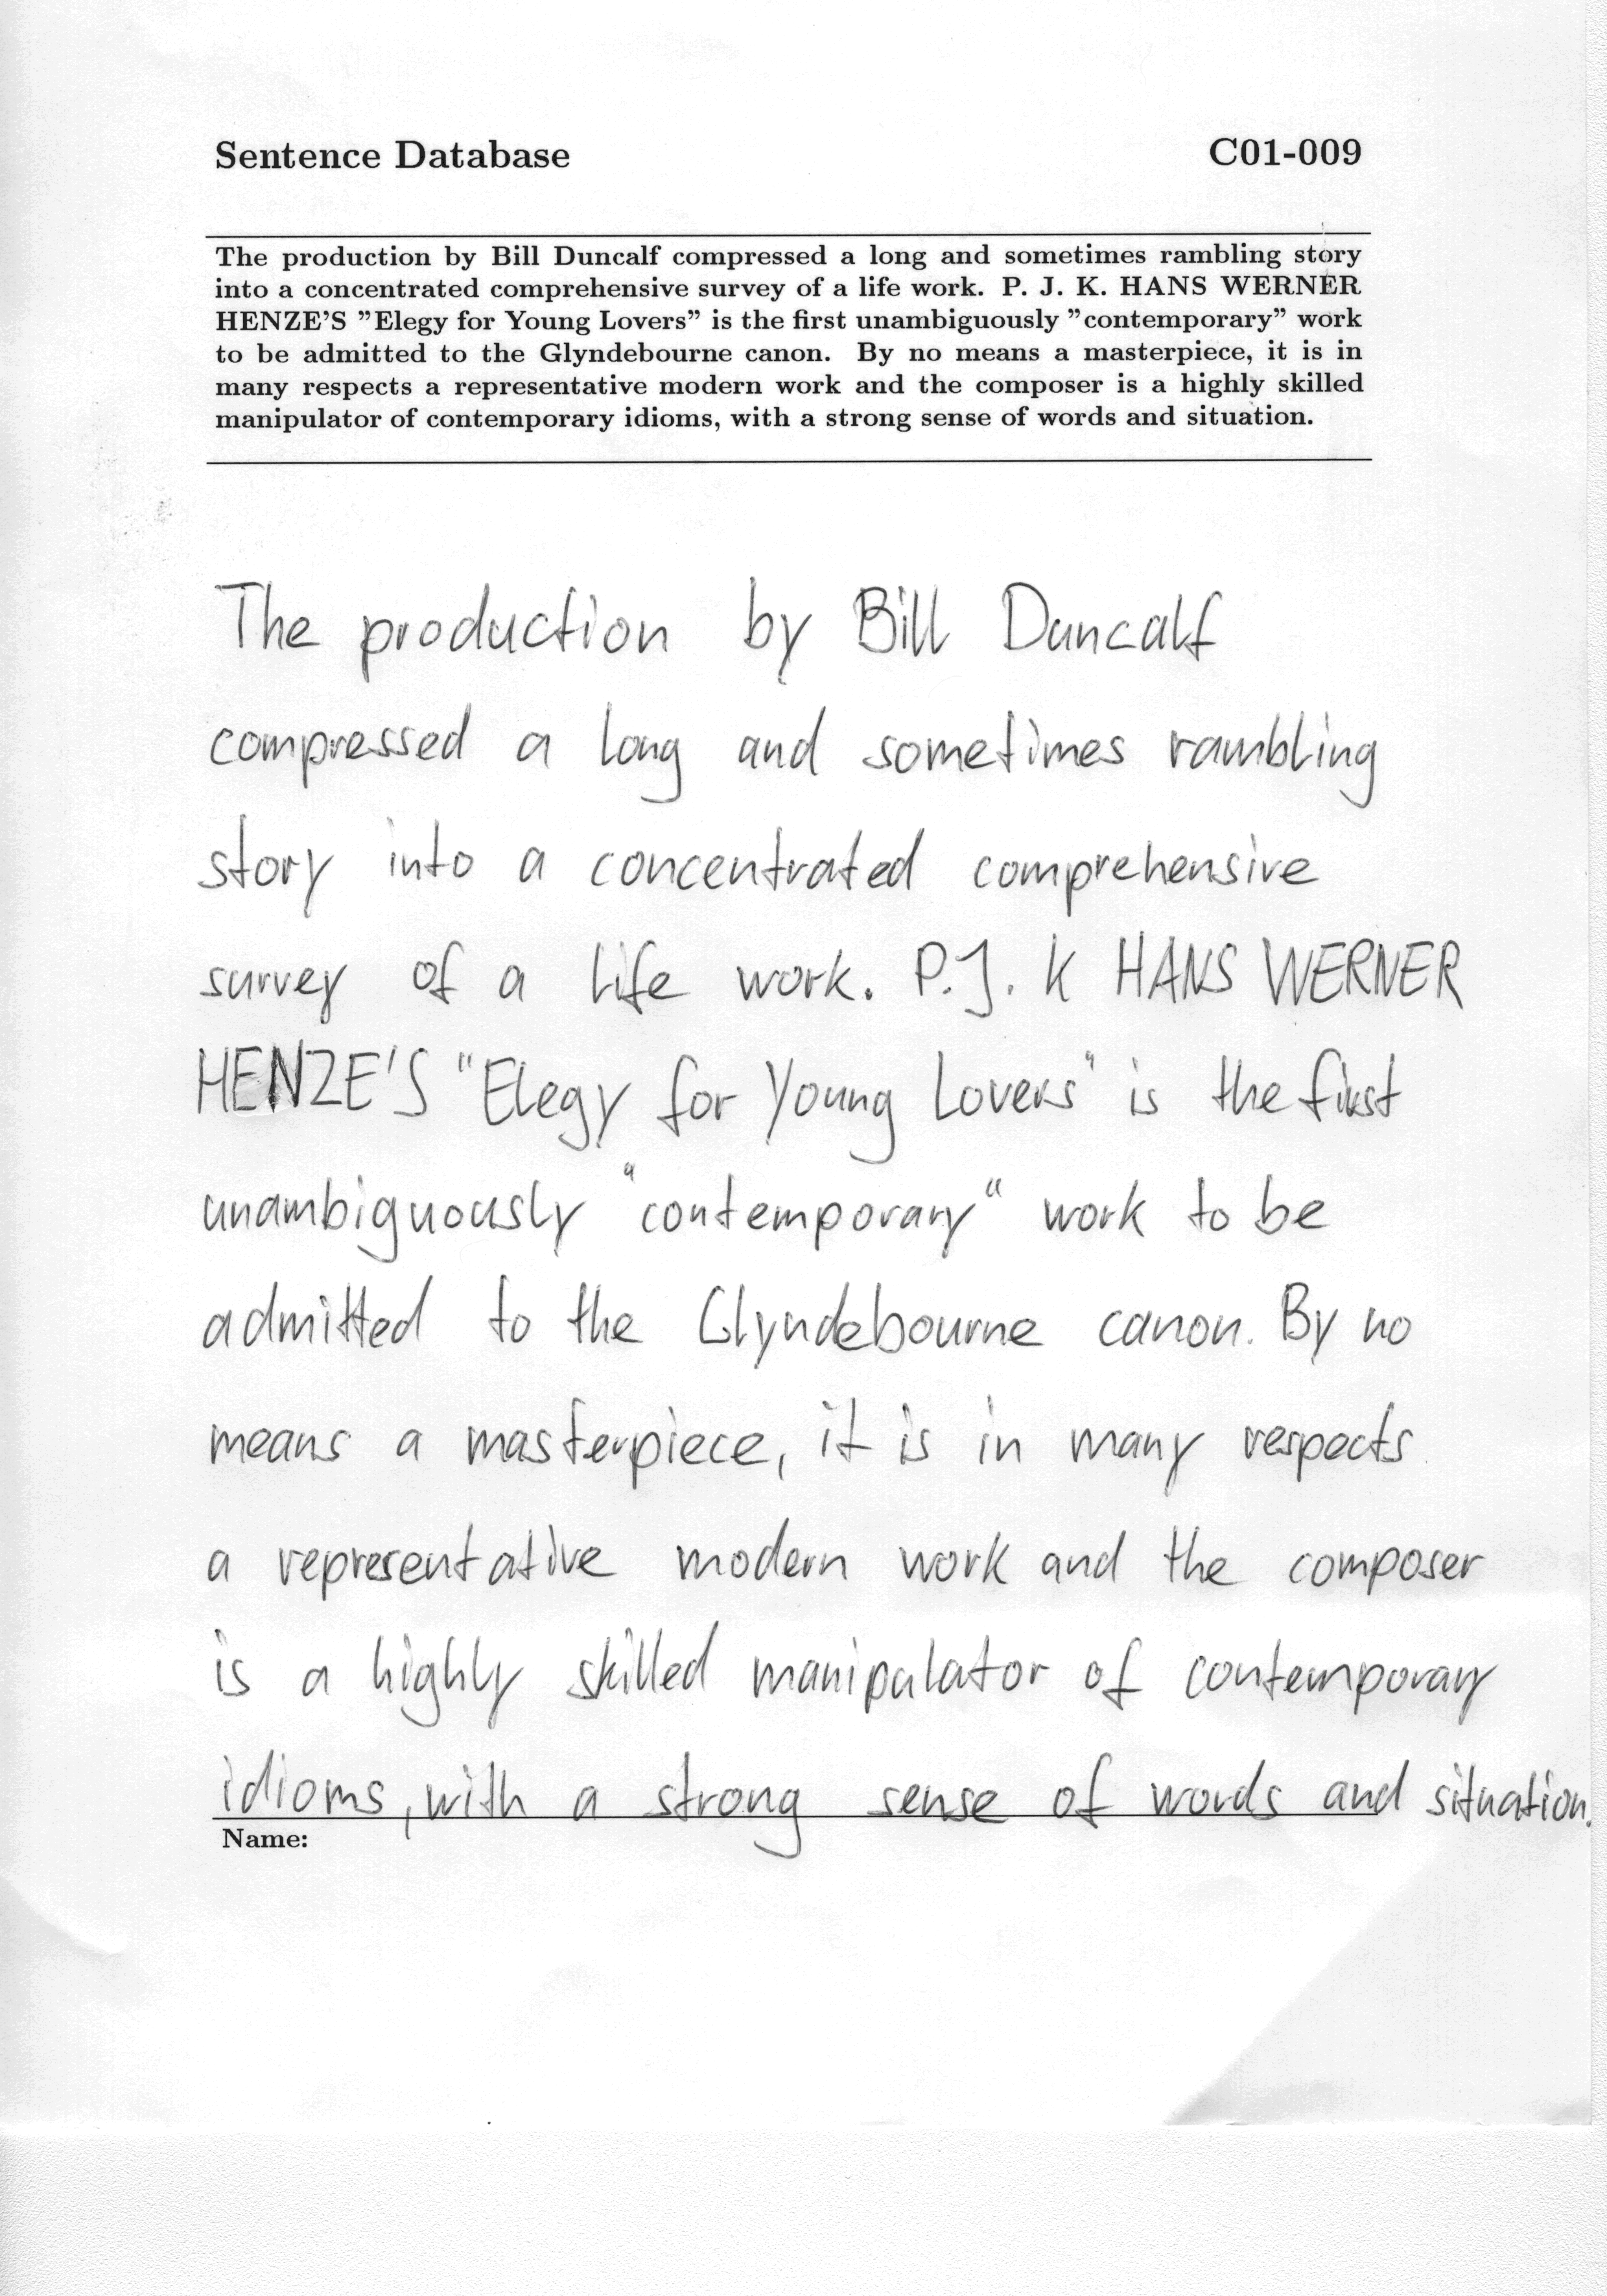 Sentence Database C01-009
The production by Bill Duncalf compressed a long and sometimes rambling story
into a concentrated comprehensive survey of a life work. P. J. K. HANS WERNER
HENZE'S ”Elegy for Young Lovers” is the first unambiguously ”contemporary” work
to be admitted to the Glyndebourne canon. By no means a masterpiece, it is in
many respects a representative modern work and the composer is a highly skilled
manipulator of contemporary idioms, with a strong sense of words and situation.
The production by Bill Duncalf
compressed a long and sometimes rambling
story into a concentrated comprehensive
survey of a life work. P.J. K HANS WERNER
HENZE'S "Elegy for Young Lovers" is the first
unambiguously "contemporary" work to be
admitted to the Glyndebourne canon. By no
means a masterpiece, it is in many respects
a representative modern work and the composer
is a highly skilled manipulator of contemporary
idioms, with a strong sense of words and situation.
Name: